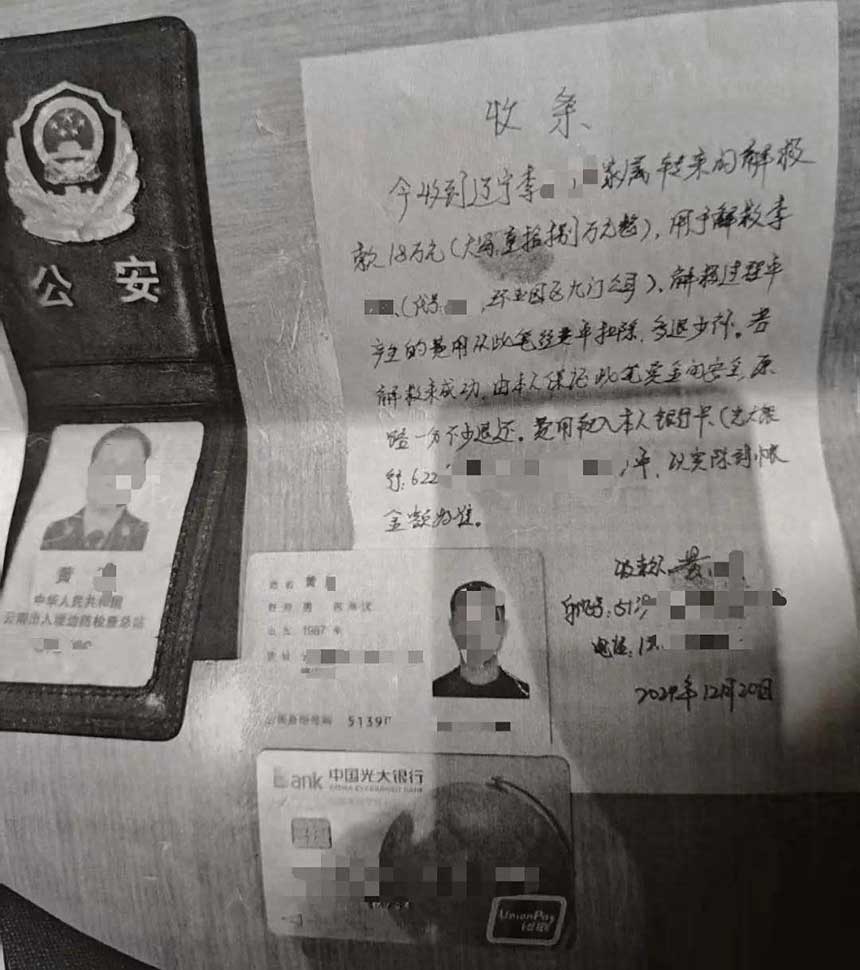 公安
黄
中华人民共和国
云南出入境边防检查总站
收条
今收到辽宁李 家属转来的解救
款18万元(大写:壹拾捌万元整),用于解救李
(代号: , 环亚园区九门公司)、解救过程中
产生的费用从此笔经费中扣除,多退少补。若
解救未成功,由本人保证此笔资金的安全,原
路一分不少退还。费用转入本人银行卡(光大银
行:622 )中,以实际到帐
金额为准。
收款人:黄
身份证号:513
电话:1
2024年12月20日
姓名 黄
性别 男 民族 汉
出生 1987 年
住址
公民身份号码 5139
Bank 中国光大银行
CHINA EVERBRIGHT BANK
UnionPay
银联